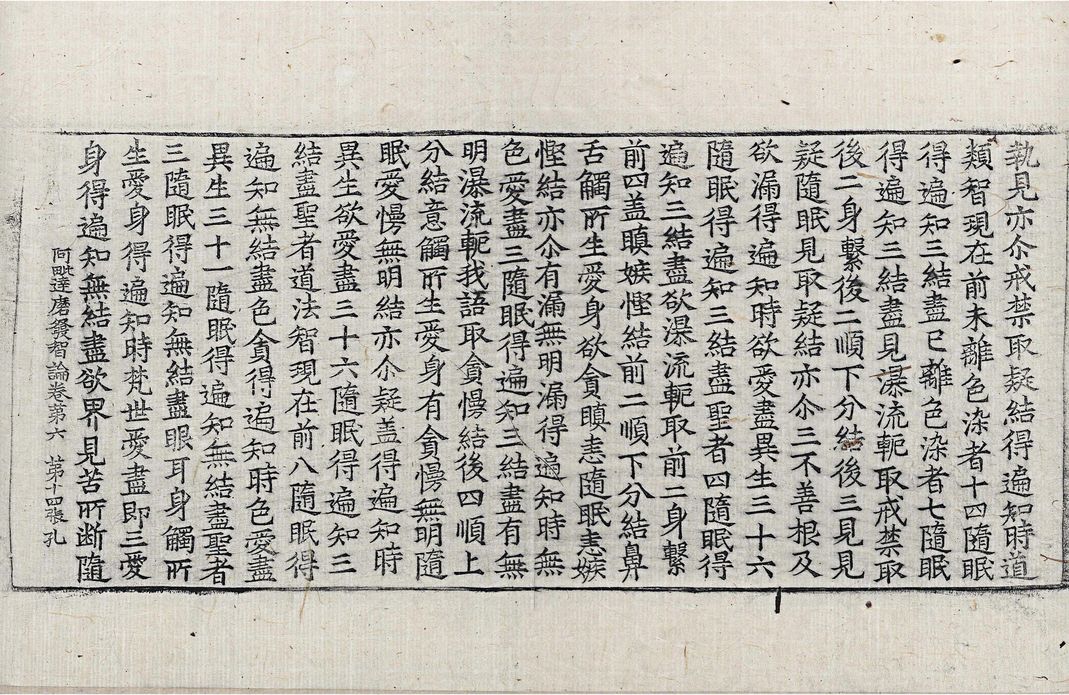 執見亦尒戒禁取疑結得遍知時道
類智現在前未離色染者十四隨眠
得遍知三結盡已離色染者七隨眠
得遍知三結盡見瀑流軛取戒禁取
後二身繫後二順下分結後三見見
疑隨眠見取疑結亦尒三不善根及
欲漏得遍知時欲愛盡異生三十六
隨眠得遍知三結盡聖者四隨眠得
遍知三結盡欲瀑流軛取前二身繫
前四盖瞋嫉慳結前二順下分結鼻
舌觸所生愛身欲貪瞋恚隨眠恚嫉
慳結亦尒有漏無明漏得遍知時無
色愛盡三隨眠得遍知三結盡有無
明瀑流軛我語取貪慢結後四順上
分結意觸所生愛身有貪慢無明隨
眠愛慢無明結亦尒疑盖得遍知時
異生欲愛盡三十六隨眠得遍知三
結盡聖者道法智現在前八隨眠得
遍知無結盡色貪得遍知時色愛盡
異生三十一隨眠得遍知無結盡聖者
三隨眠得遍知無結盡眼耳身觸所
生愛身得遍知時梵世愛盡即三愛
身得遍知無結盡欲界見苦所断隨
阿毗達磨發智論卷第六　第十四張　孔